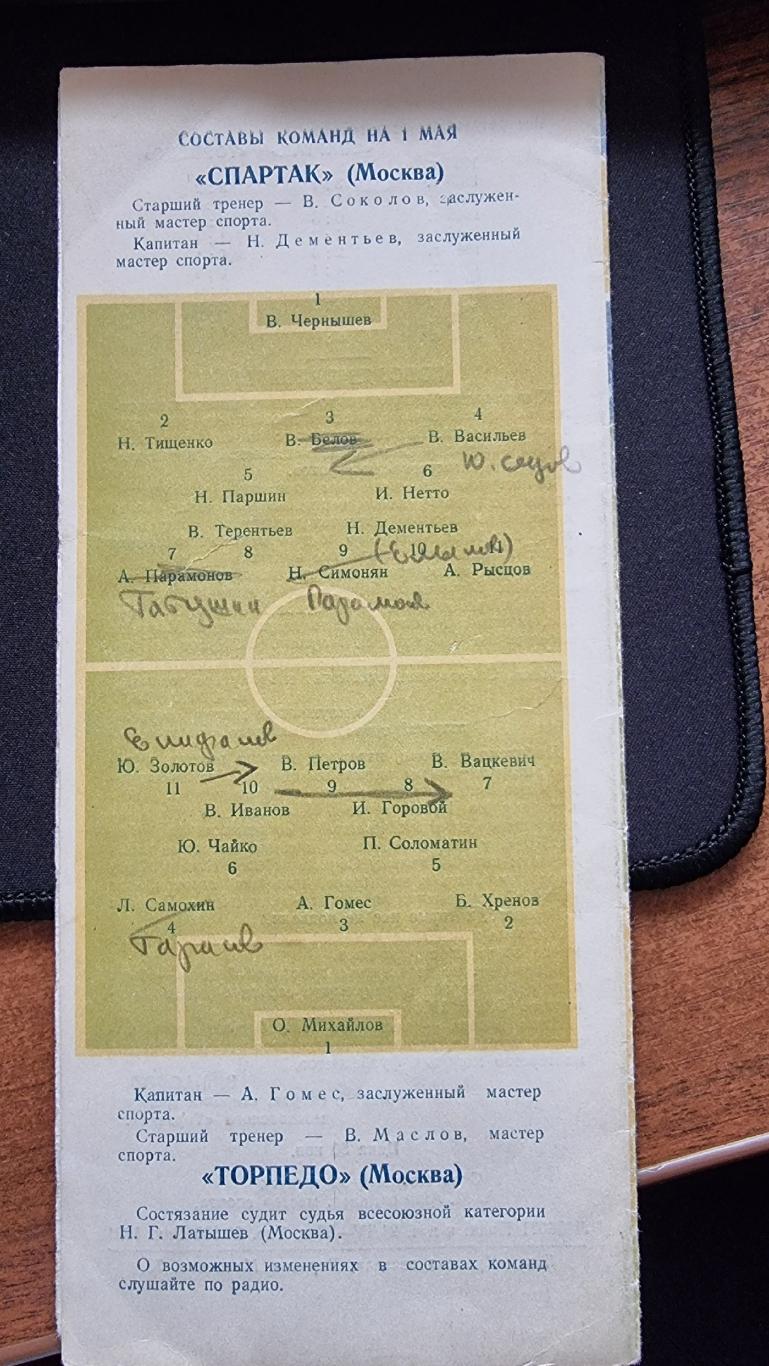 СОСТАВЫ КОМАНД НА 1 МАЯ
«СПАРТАК» (Москва)
Старший тренер — В. Соколов, заслужен-
ный мастер спорта.
Капитан — Н. Дементьев, заслуженный
мастер спорта.
1
В. Чернышев
2 3 4
Н. Тищенко В. Белов В. Васильев
Ю. Седов
5 6
Н. Паршин И. Нетто
В. Терентьев Н. Дементьев
7 8 9 10
А. Парамонов Н. Симонян А. Рысцов
Татушин Парамонов
Ю. Золотов В. Петров В. Вацкевич
11 10 9 8 7
В. Иванов И. Горовой
Ю. Чайко П. Соломатин
6 5
Л. Самохин А. Гомес Б. Хренов
4 3 2
О. Михайлов
1
Капитан — А. Гомес, заслуженный мастер
спорта.
Старший тренер — В. Маслов, мастер
спорта.
«ТОРПЕДО» (Москва)
Состязание судит судья всесоюзной категории
Н. Г. Латышев (Москва).
О возможных изменениях в составах команд
слушайте по радио.